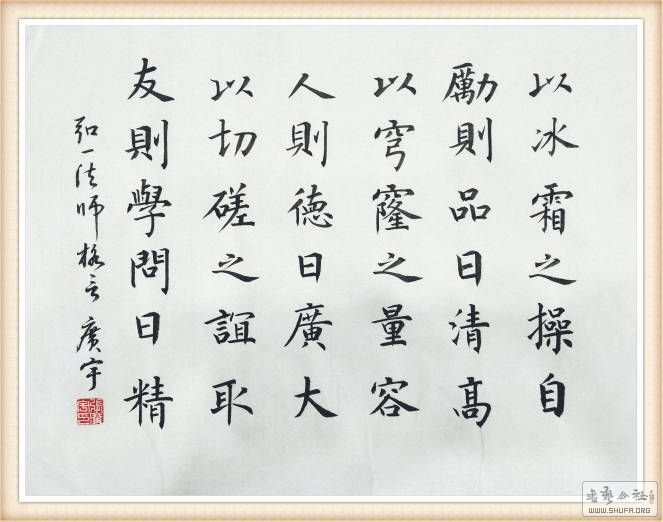 以冰霜之操自
勵則品日清高
以穹窿之量容
人則德日廣大
以切磋之誼取
友則學問日精
弘一法師格言 廣宇
書藝公社
WWW.SHUFA.ORG